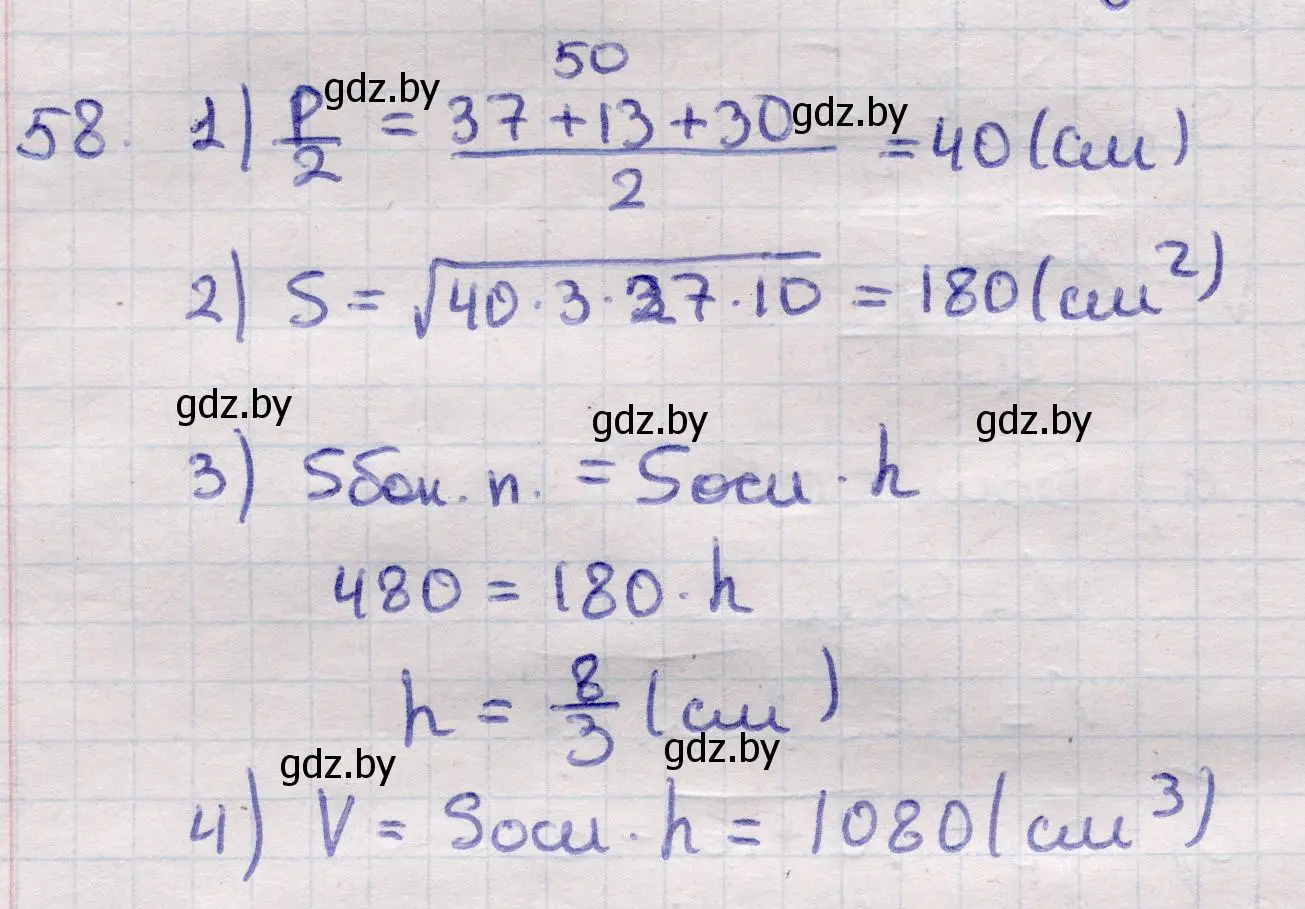 50
58. 1) P/2 = (37 + 13 + 30)/2 = 40 (см)
2) S = √(40 · 3 · 27 · 10) = 180 (см²)
3) Sбок. п. = Sосн · h
480 = 180 · h
h = 8/3 (см)
4) V = Sосн · h = 1080 (см³)
gdz.by
gdz.by
gdz.by
gdz.by
gdz.by
gdz.by
gdz.by